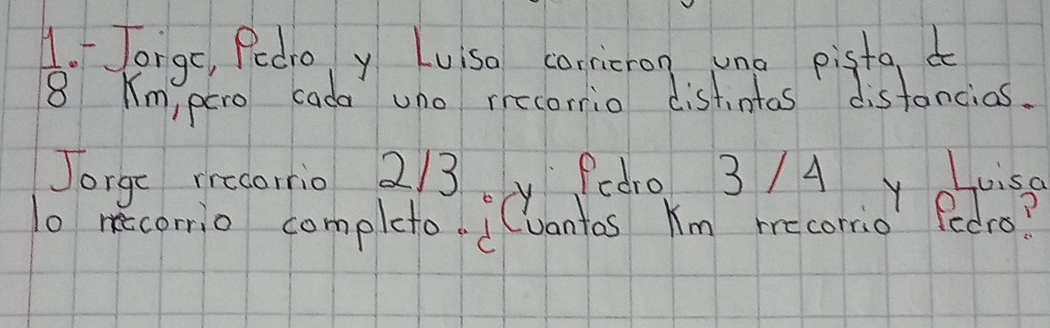 1.- Jorge, Pedro y Luisa corrieron una pista de
8 Km, pero cada uno rrecorrio distintas distancias.
Jorge rrecorrio 2/3. y Pedro 3/4 y Luisa
lo rrecorrio completo. ¿Cuantos Km rrecorrio Pedro?